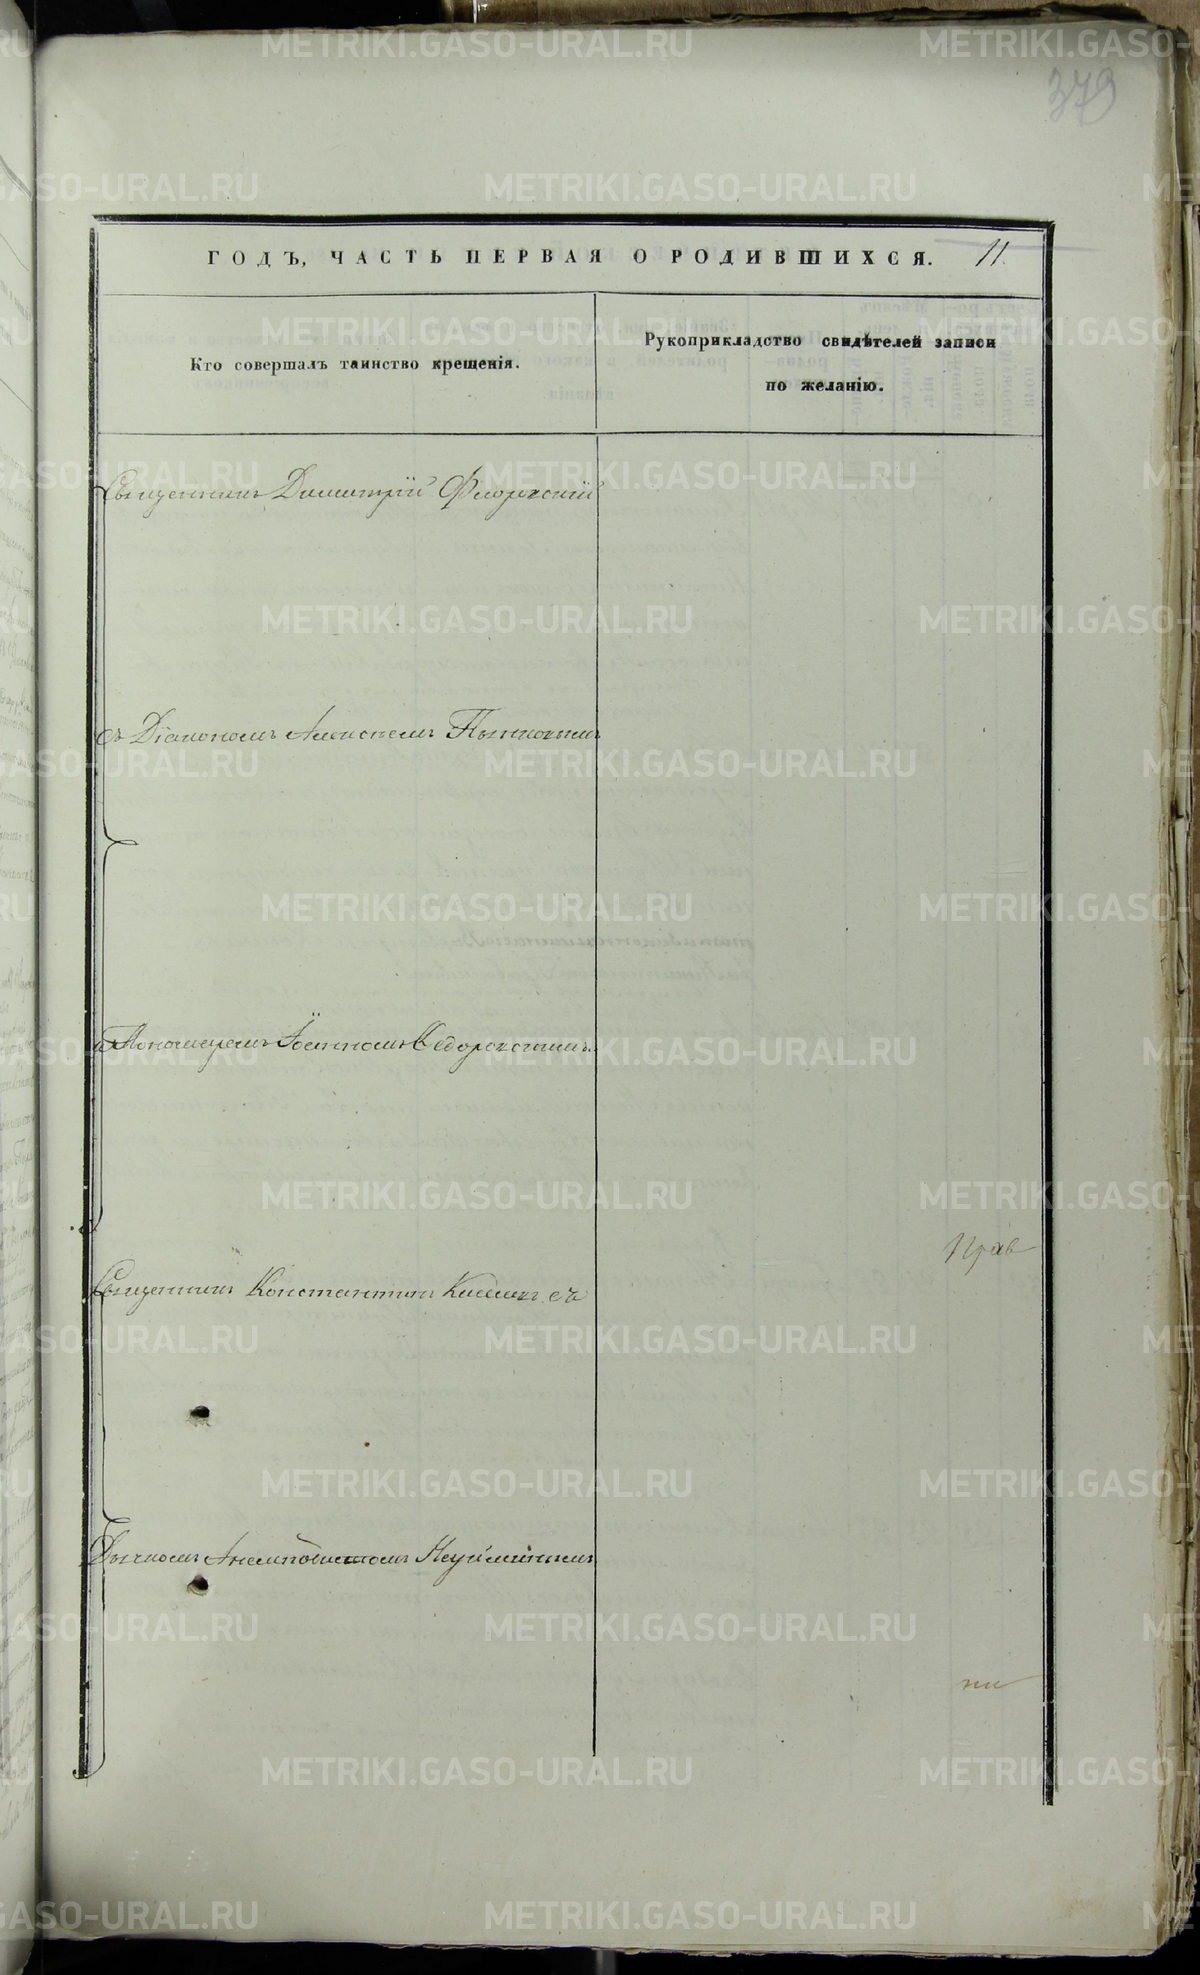 379
ГОДЪ, ЧАСТЬ ПЕРВАЯ О РОДИВШИХСЯ. 11.
Кто совершалъ таинство крещенія.
Рукоприкладство свидѣтелей записи
по желанію.
Священникъ Димитрій Флоровскій
съ Діакономъ Алексѣемъ
и Пономаремъ Іоанномъ Ѳедоровскимъ.
Священникъ Константинъ съ
Дьячкомъ Неуйминымъ
METRIKI.GASO-URAL.RU